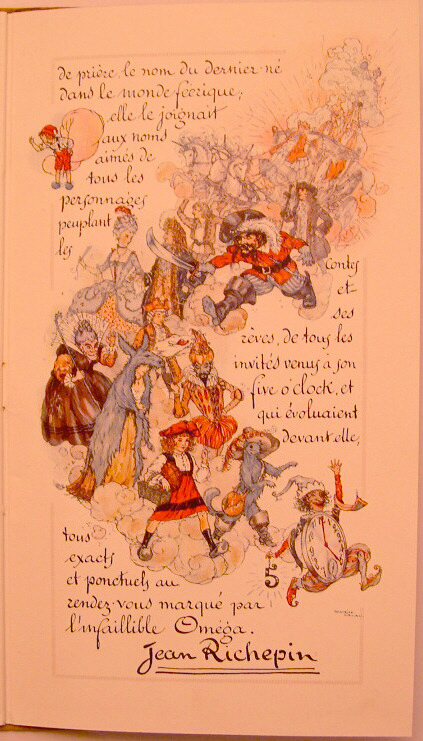 de prière, le nom du dernier né
dans le monde féerique;
elle le joignait
aux noms
aimés de
tous les
personnages
peuplant
les
contes
et
ses
rêves, de tous les
invités venus à son
five o'clock, et
qui évoluaient
devant elle,
tous
exacts
et ponctuels au
rendez-vous marqué par
l'infaillible Oméga.
Jean Richepin
5